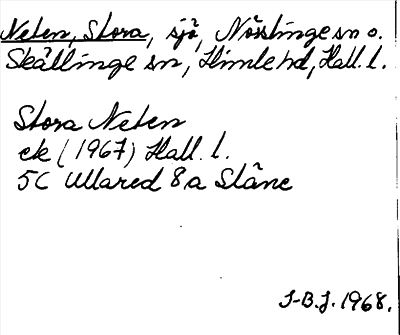 Neten, Stora, sjö, Nösslinge sn o.
Skällinge sn, Himle hd, Hall. l.
Stora Neten
ek (1967) Hall. l.
5C Ullared 8a Slåne
J-B.J. 1968.